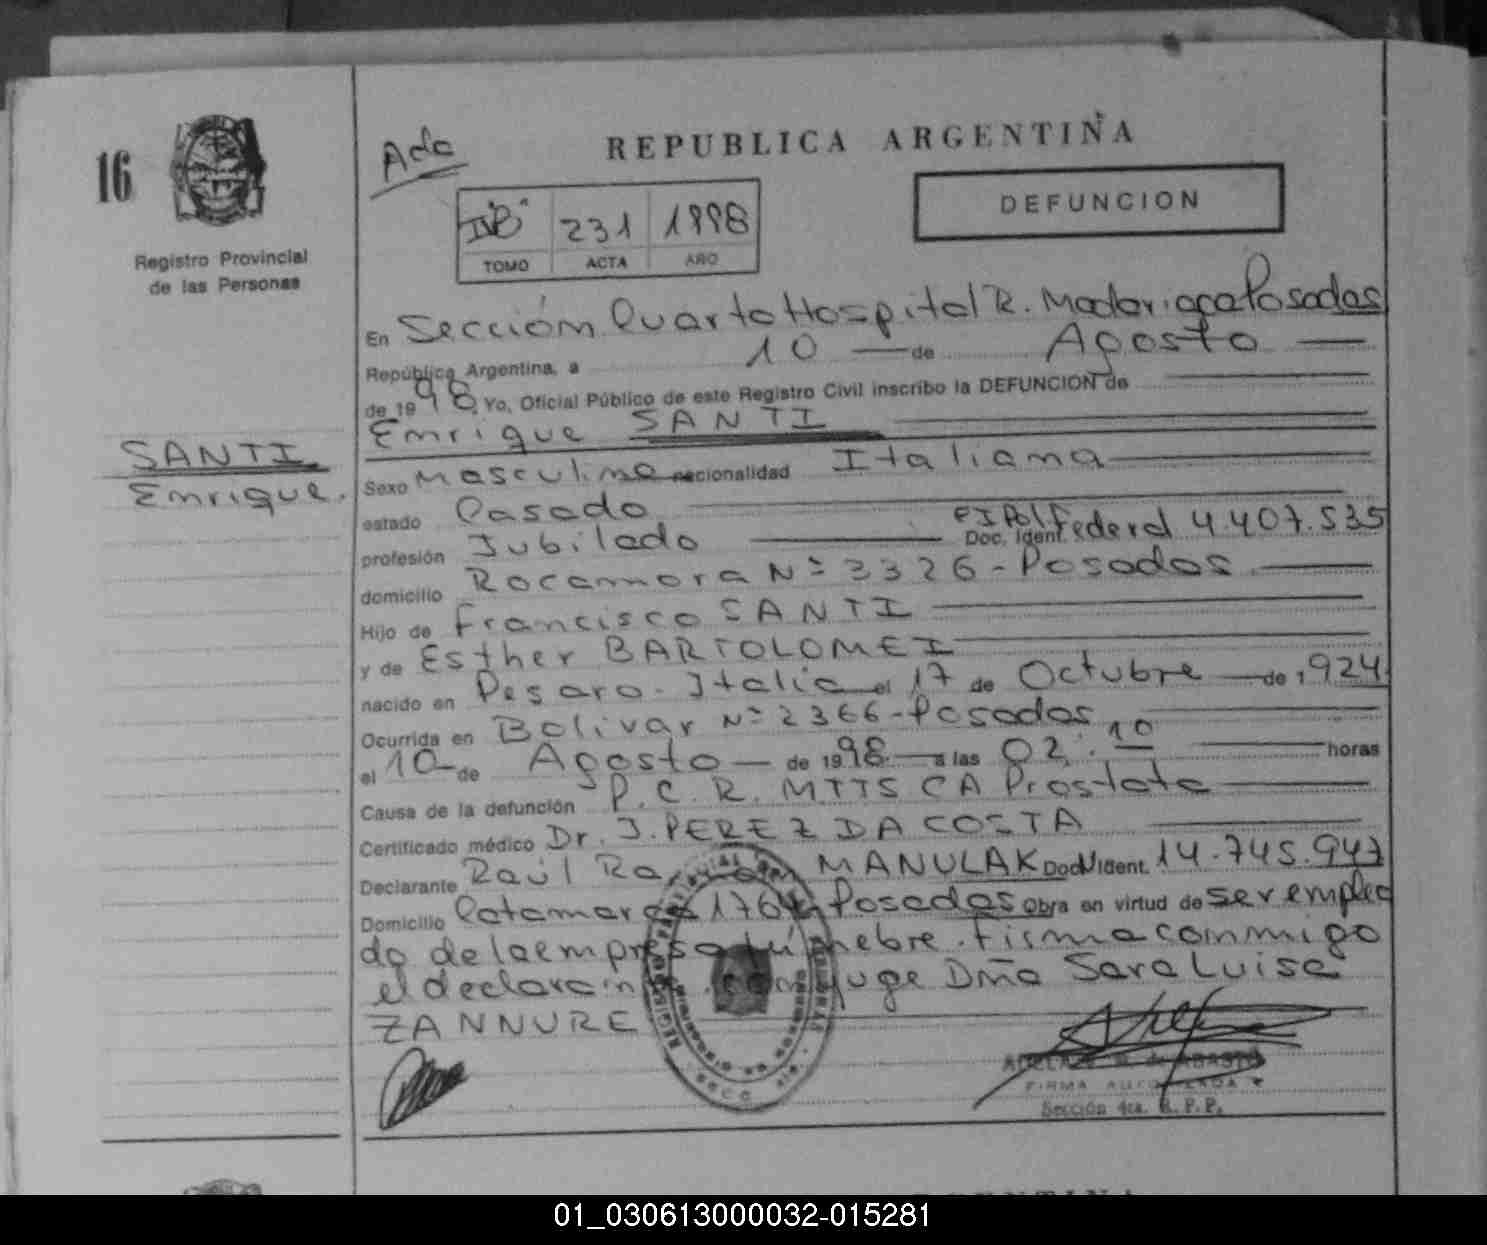 16
Registro Provincial
de las Personas
REPUBLICA ARGENTINA
231 1998
TOMO ACTA AÑO
DEFUNCION
En Sección Cuarta Hospital R. Madariaga Posadas
República Argentina, a 10 de Agosto
de 1998 Yo, Oficial Público de este Registro Civil inscribo la DEFUNCION de
Enrique SANTI
SANTI
Enrique.
Sexo Masculino nacionalidad Italiana
estado Casado
profesión Jubilado Doc. Ident. CI Pol Federal 4.407.535
domicilio Rocamora Nº 3326 - Posadas
Hijo de Francisco SANTI
y de Esther BARTOLOMEI
nacido en Pesaro - Italia el 17 de Octubre de 1924
Ocurrida en Bolivar Nº 2366 - Posadas
el 10 de Agosto de 1998 a las 02:10 horas
Causa de la defunción P.C.R. MTTS CA Prostata
Certificado médico Dr. J. PEREZ DA COSTA
Declarante Raúl MANULAK Doc. Ident. 14.745.947
Domicilio Catamarca 1764 Posadas Obra en virtud de ser emplea
do de la empresa fúnebre. Firma conmigo
el declarante. conyuge Dña Sara Luisa
ZANNURE
FIRMA AUTORIZADA
Sección 4ta. R.P.P.
01_030613000032-015281